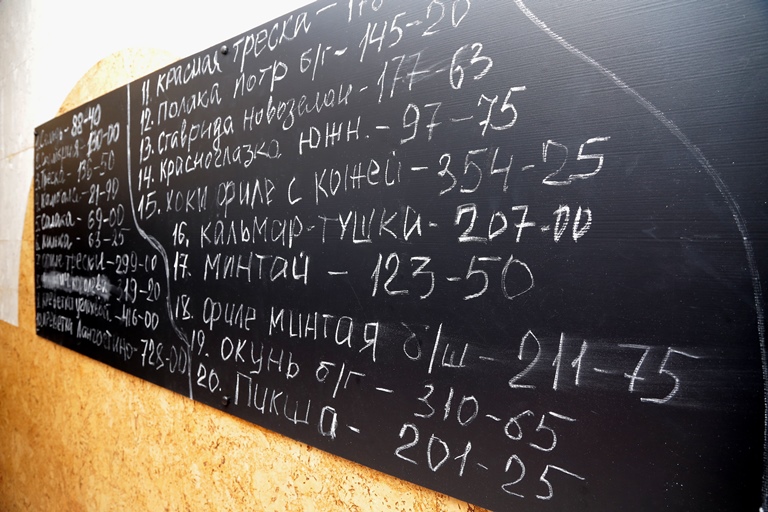 88-40
130-00
Треска -
Салака - 69-00
63-25
филе трески -
19-20
креветка - 416-00
креветка Лангостино - 728-00
11. Красная треска -
12. Полака потр б/г - 145-20
13. Ставрида новозелан - 177-63
14. Красноглазка южн. - 97-75
15. Хоки филе с кожей - 354-25
16. Кальмар-тушка - 207-00
17. Минтай - 123-50
18. филе минтая б/ш - 211-75
19. Окунь б/г - 310-65
20. Пикша - 201-25